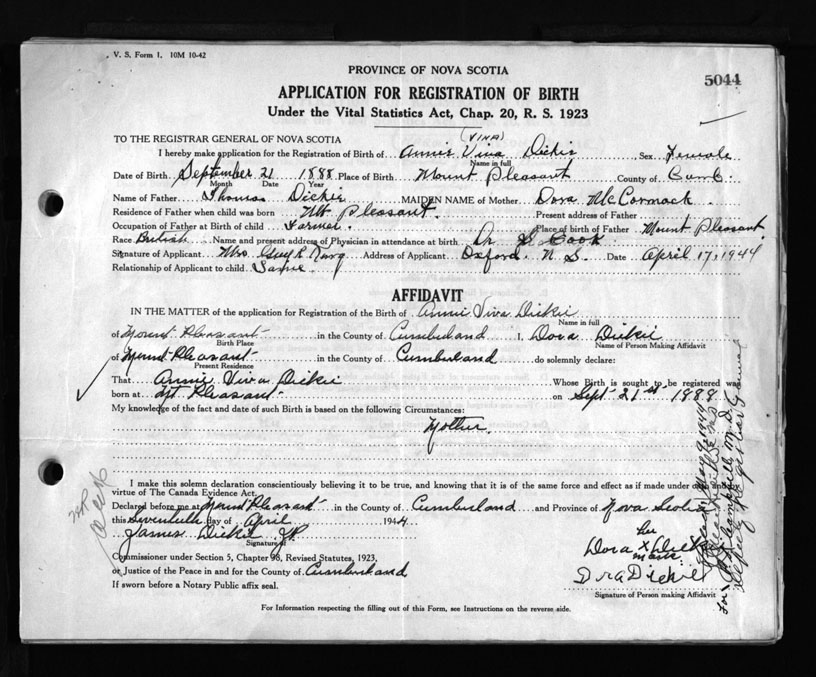 V. S. Form 1. 10M 10-42
PROVINCE OF NOVA SCOTIA
5044
APPLICATION FOR REGISTRATION OF BIRTH
Under the Vital Statistics Act, Chap. 20, R. S. 1923
TO THE REGISTRAR GENERAL OF NOVA SCOTIA
(VINA)
I hereby make application for the Registration of Birth of Annie Viva Dickie, Sex Female
Name in full
Date of Birth September 21 1888 Place of Birth Mount Pleasant County of Cumb.
Month Date Year
Name of Father Thomas Dickie MAIDEN NAME of Mother Dora McCormack
Residence of Father when child was born Mt Pleasant. Present address of Father
Occupation of Father at Birth of child Farmer. Place of birth of Father Mount Pleasant
Race British Name and present address of Physician in attendance at birth Dr Cook
Signature of Applicant Mrs R Address of Applicant Oxford. N. S. Date April 17, 1944
Relationship of Applicant to child Same.
AFFIDAVIT
IN THE MATTER of the application for Registration of the Birth of Annie Viva Dickie
Name in full
of Mount Pleasant in the County of Cumberland I, Dora Dickie
Birth Place Name of Person Making Affidavit
of Mount Pleasant in the County of Cumberland do solemnly declare:
Present Residence
That Annie Viva Dickie Whose Birth is sought to be registered was
born at Mt Pleasant on Sept 21st 1888
My knowledge of the fact and date of such Birth is based on the following Circumstances:
Mother.
I make this solemn declaration conscientiously believing it to be true, and knowing that it is of the same force and effect as if made under oath and
virtue of The Canada Evidence Act.
Declared before me at Mount Pleasant in the County of Cumberland and Province of Nova Scotia
this Seventeenth day of April 1944
James Dickie JP
Signature of
Commissioner under Section 5, Chapter 98, Revised Statutes, 1923,
or Justice of the Peace in and for the County of Cumberland
If sworn before a Notary Public affix seal.
her
Dora X Dickie
mark
Dora Dickie
Signature of Person making Affidavit
For Information respecting the filling out of this Form, see Instructions on the reverse side.
Campbell, M.D.
Deputy Registrar General